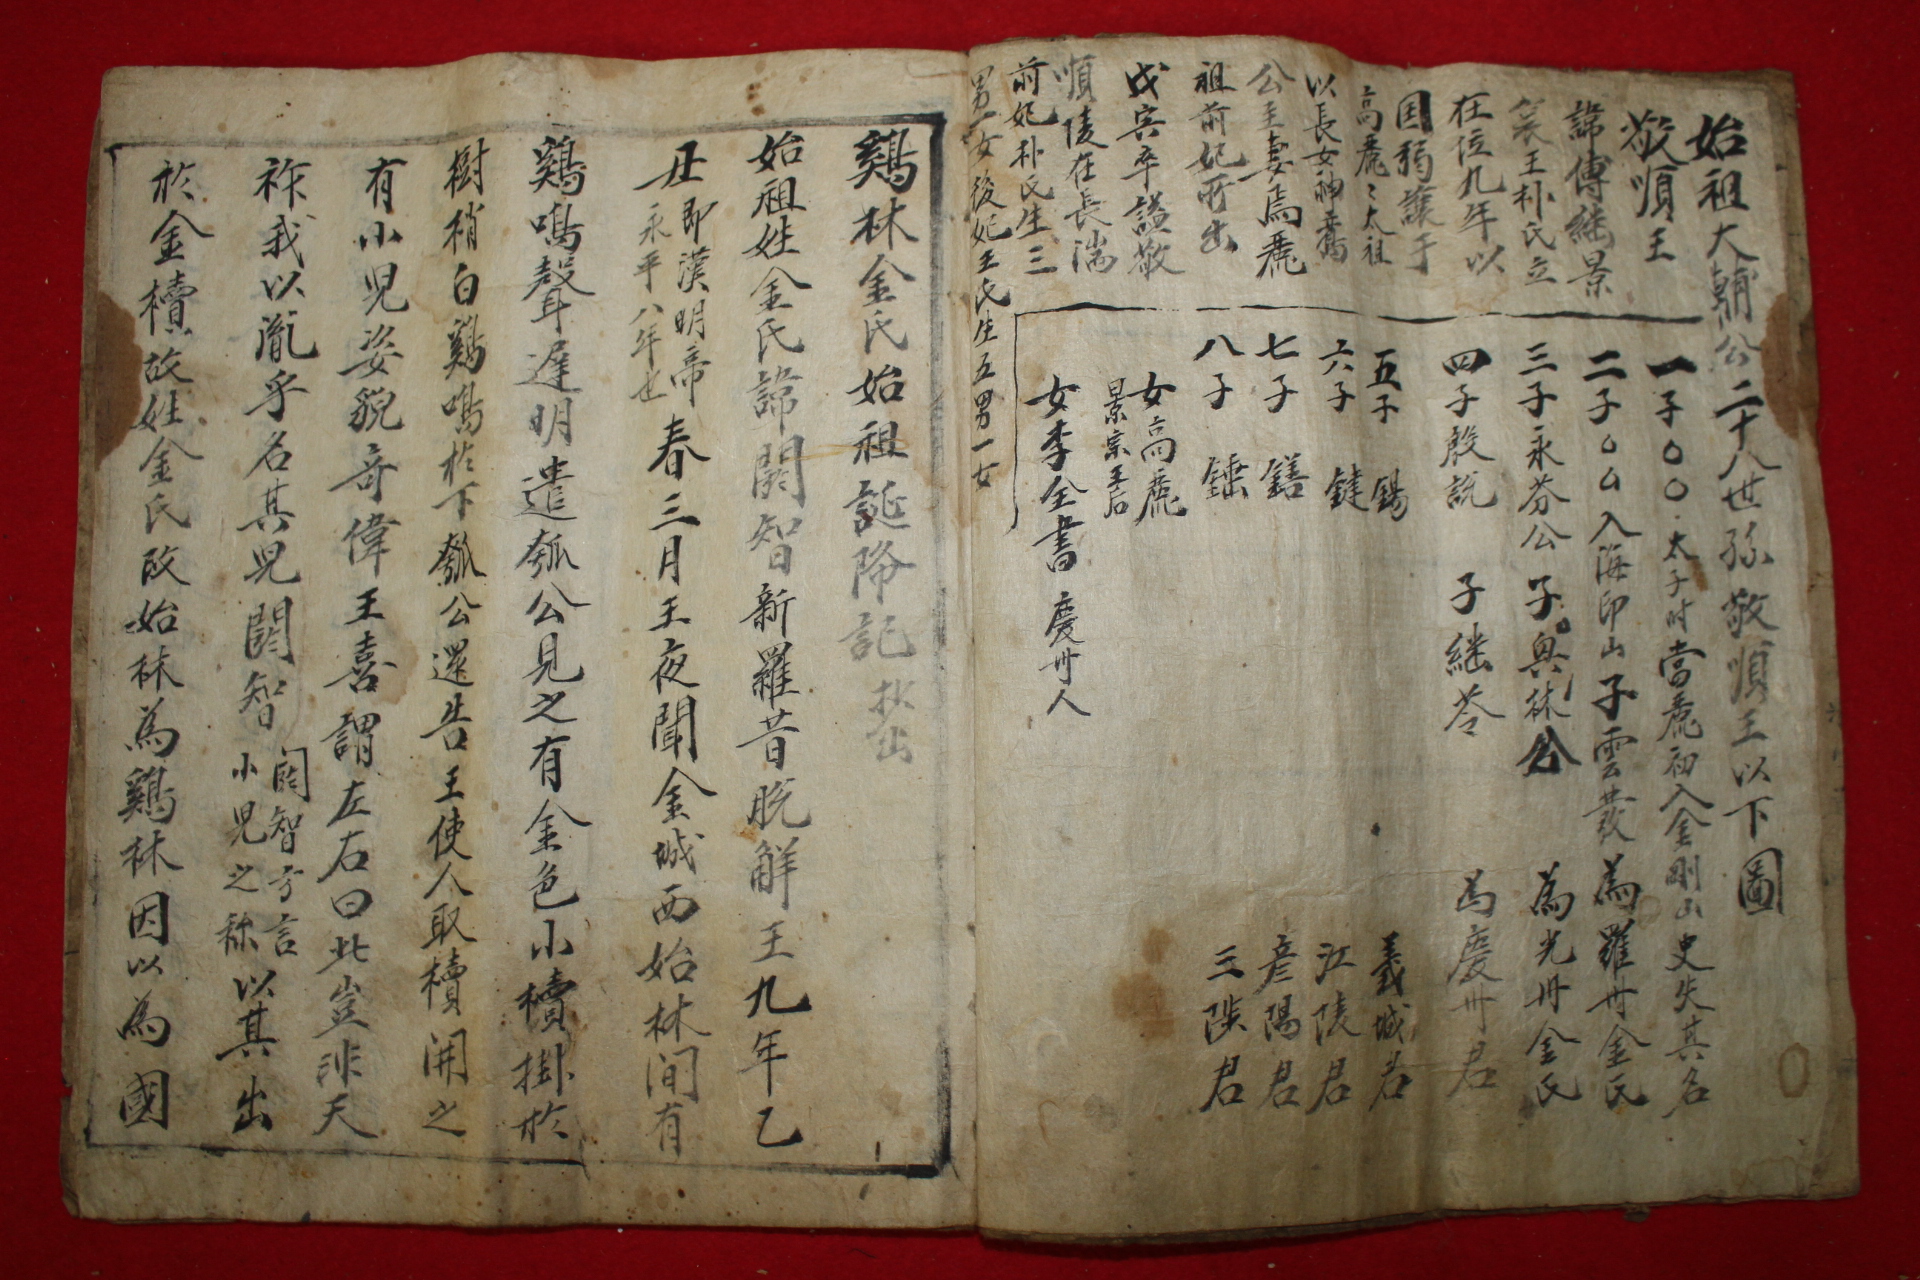 始祖大輔公二十八世孫敬順王以下圖
敬順王
諱傅継景
哀王朴氏立
在位九年以
国弱讓于
高麗〻太祖
以長女神鸞
公主妻焉麗
祖前妃所出
戊寅卒謚敬
順陵在長湍
前妃朴氏生三
男一女後妃王氏生五男一女
一子〇〇太子時當麗初入金剛山史失其名
二子〇〇入海印山子雲發為羅州金氏
三子永芬公子興林公為光州金氏
四子殷說子継苓為慶州君
五子錫義城君
六子鍵江陵君
七子鐥彦陽君
八子錘三陟君
女高麗
景宗王后
女李金書慶州人
鷄林金氏始祖誕降記抄出
始祖姓金氏諱閼智新羅昔脫解王九年乙
丑即漢明帝永平八年也春三月王夜聞金城西始林間有
鷄鳴聲遅明遣瓠公見之有金色小櫝掛於
樹梢白鷄鳴於下瓠公還告王使人取櫝開之
有小兒姿貌奇偉王喜謂左右曰此豈非天
祚我以胤乎名其兒閼智閼智方言小兒之称以其出
於金櫝故姓金氏改始林為鷄林因以為國